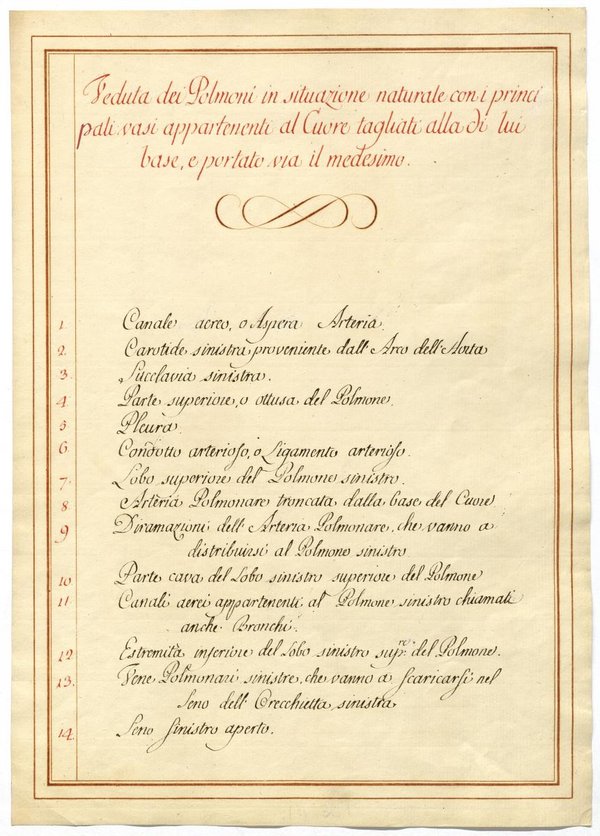 Veduta dei Polmoni in situazione naturale con i princi
pali vasi appartenenti al Cuore tagliati alla di lui
base, e portato via il medesimo.
1. Canale aereo, o Aspera Arteria.
2. Carotide sinistra proveniente dall'Arco dell'Aorta
3. Succlavia sinistra.
4. Parte superiore, o ottusa del Polmone.
5 Pleura.
6. Condotto arterioso, o Ligamento arterioso.
7. Lobo superiore del Polmone sinistro.
8 Arteria Polmonare troncata dalla base del Cuore
9 Diramazioni dell'Arteria Polmonare, che vanno a
distribuirsi al Polmone sinistro
10 Parte cava del Lobo sinistro superiore del Polmone
11 Canali aerei appartenenti al Polmone sinistro chiamati
anche Bronchi.
12 Estremità inferione del Lobo sinistro sup.re del Polmone.
13. Vene Polmonari sinistre, che vanno a scaricarsi nel
Seno dell'Orecchietta sinistra
14. Seno sinistro aperto.